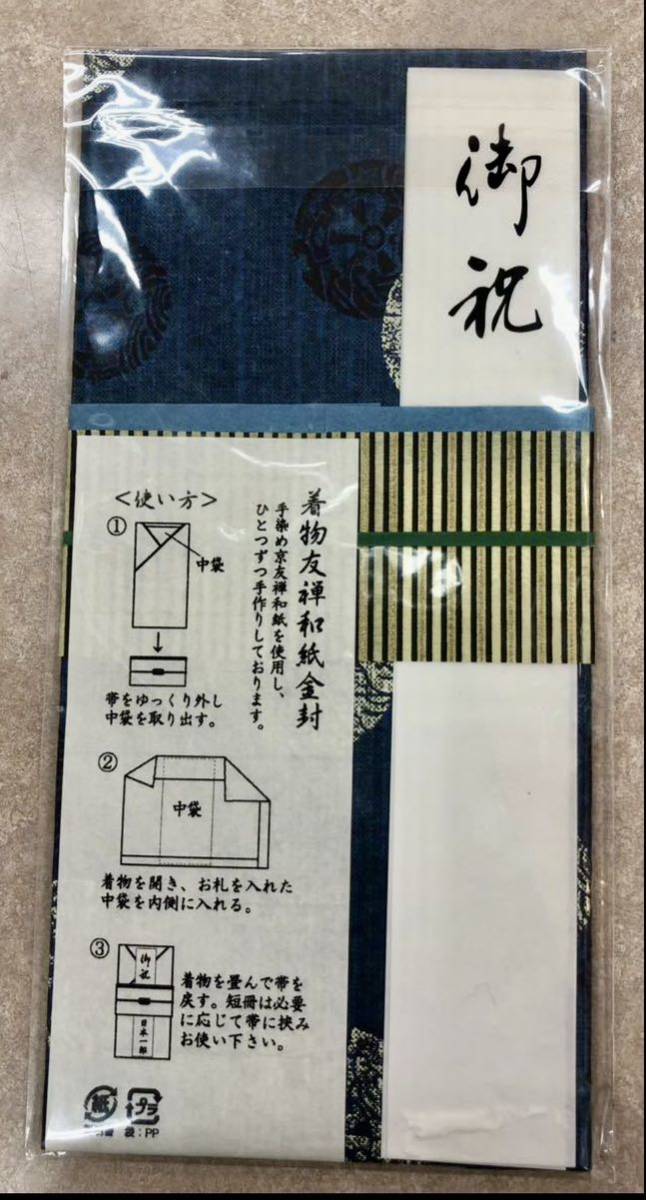 御祝
着物友禅和紙金封
手染め京友禅和紙を使用し、
ひとつずつ手作りしております。
<使い方>
①
中袋
帯をゆっくり外し
中袋を取り出す。
②
中袋
着物を開き、お札を入れた
中袋を内側に入れる。
③
御祝
日本一郎
着物を畳んで帯を
戻す。短冊は必要
に応じて帯に挟み
お使い下さい。
紙
プラ
袋：PP